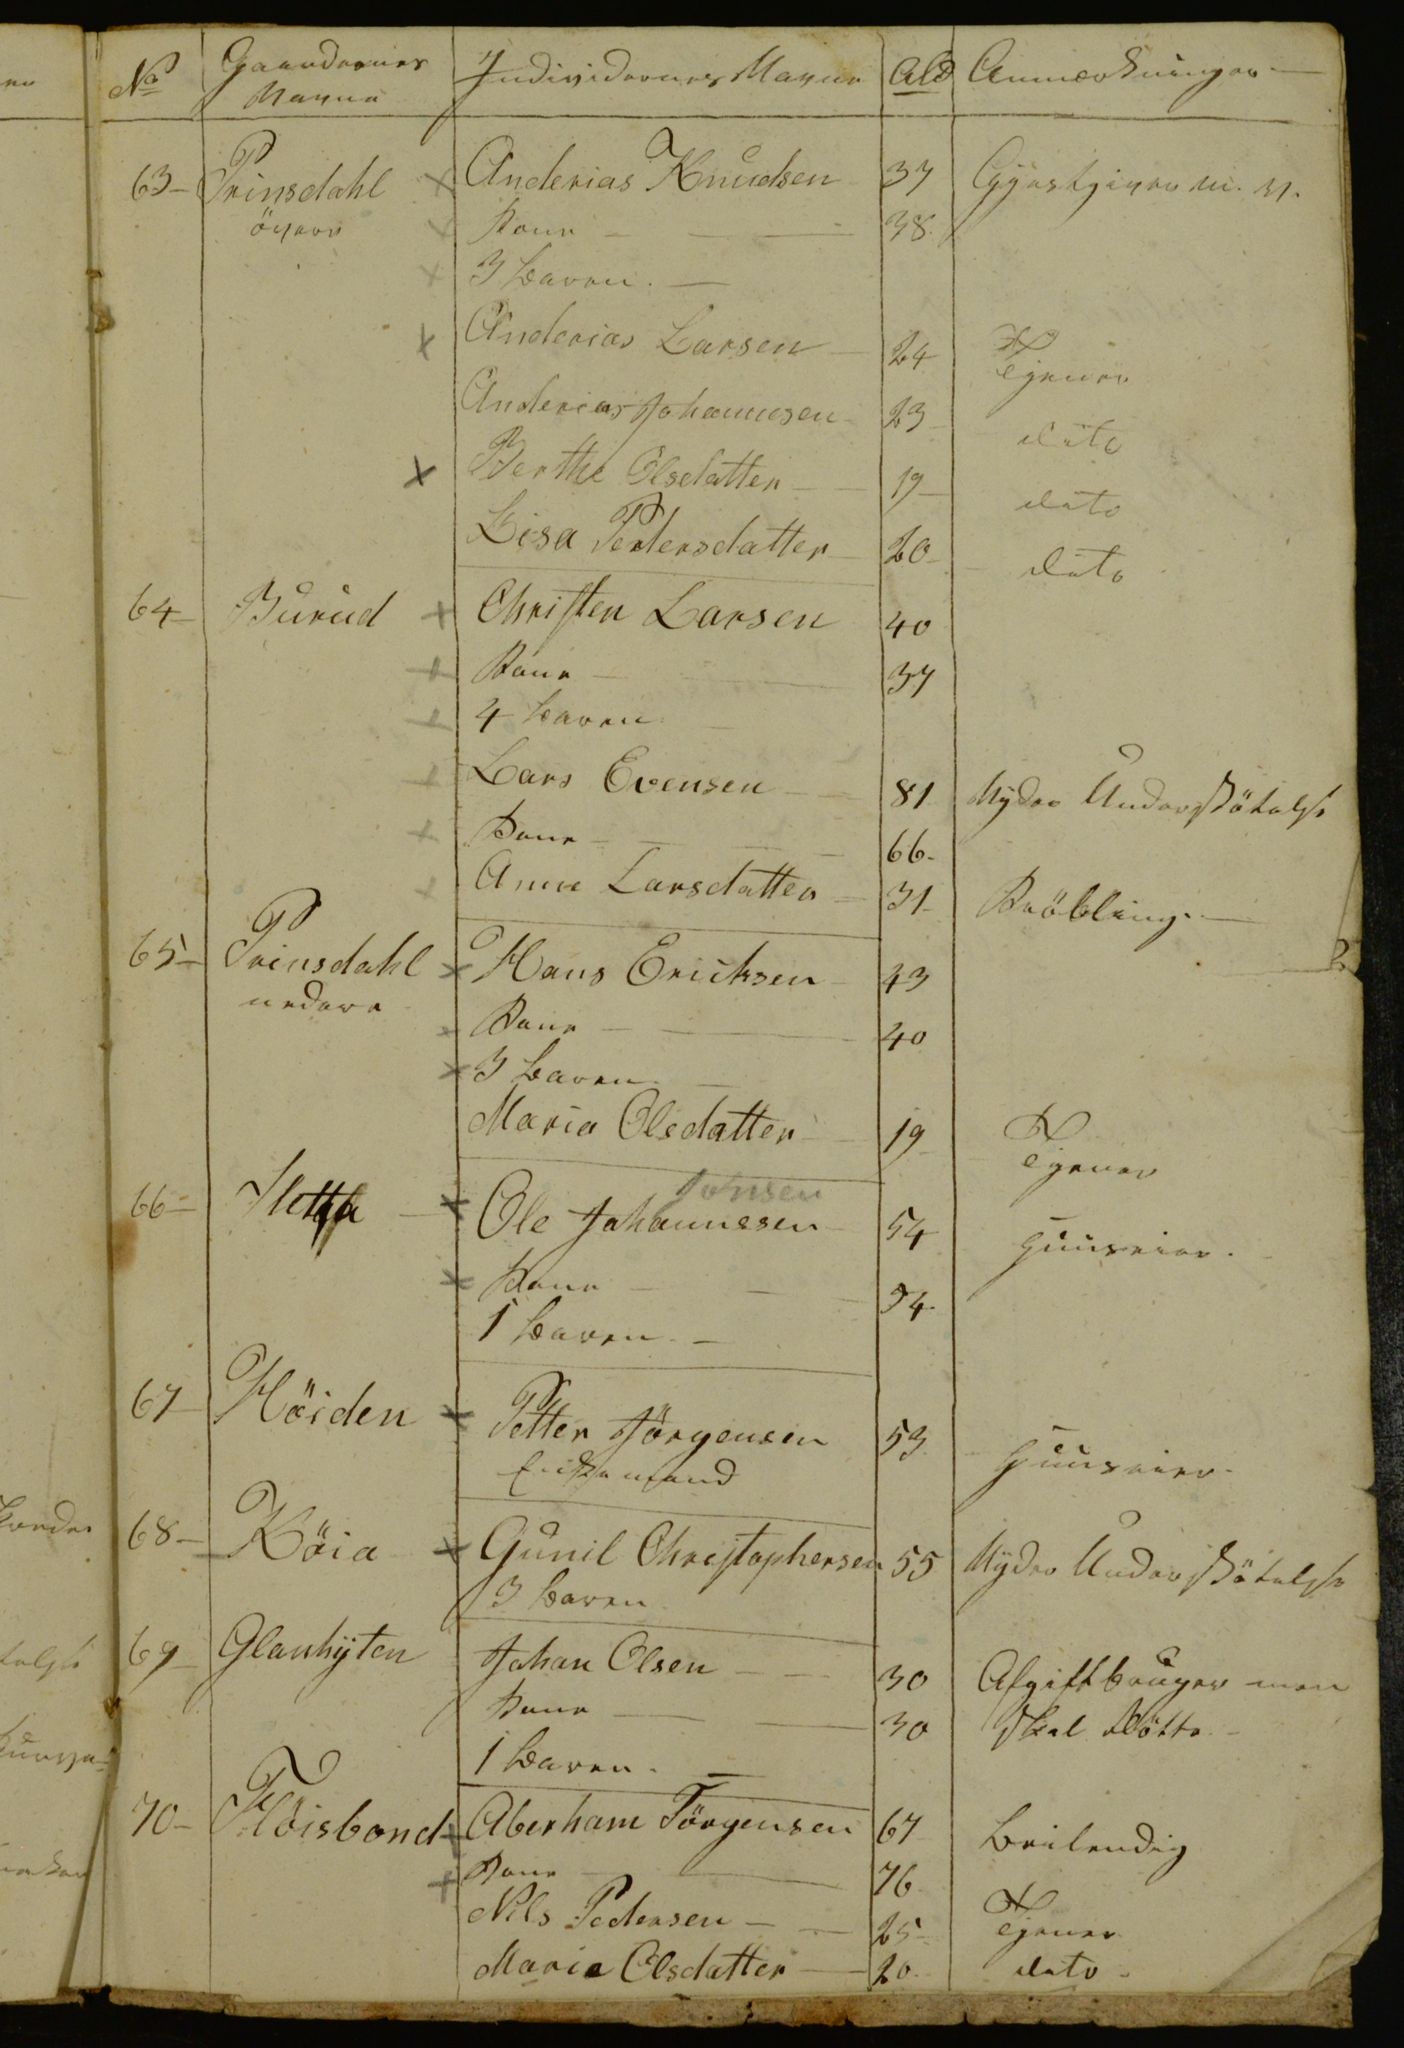 No Gaardenes Navne Individernes Navne Ald Anmærkninger
63 Prinsdahl Anderias Knudsen 37 Gjæstgiver
øvere Kone 38
3 Børn
Anderias Larsen 24 Tjener
Anderias Johannesen 23 dito
Berthe Olsdatter 19 dito
Lisa Pedersdatter 20 dito
64 Burud Christen Larsen 40
Kone 37
4 Børn
Lars Evensen 81 Nyder Understöttelse
Kone 66
Anne Larsdatter 31 Kröbling
65 Prinsdahl Hans Ericksen 43
nedere Kone 40
3 Børn
Maria Olsdatter 19 Tjener
Jonsen
66 Ole Johannesen 54 Huuseier
Kone 54
1 Børn
67 Höiden Petter Jörgensen 53 Huuseier
Enkemand
68 Köia Gunil Christophersen 55 Nyder Understöttelse
3 Børn
69 Glashyten Johan Olsen 30 Afgiftbruger men
Kone 30 skal flötte
1 Børn
70 Flöisbond Aberham Törgensen 67
Kone 76
Nils Pedersen 25 Tjener
Marie Olsdatter 20 dito